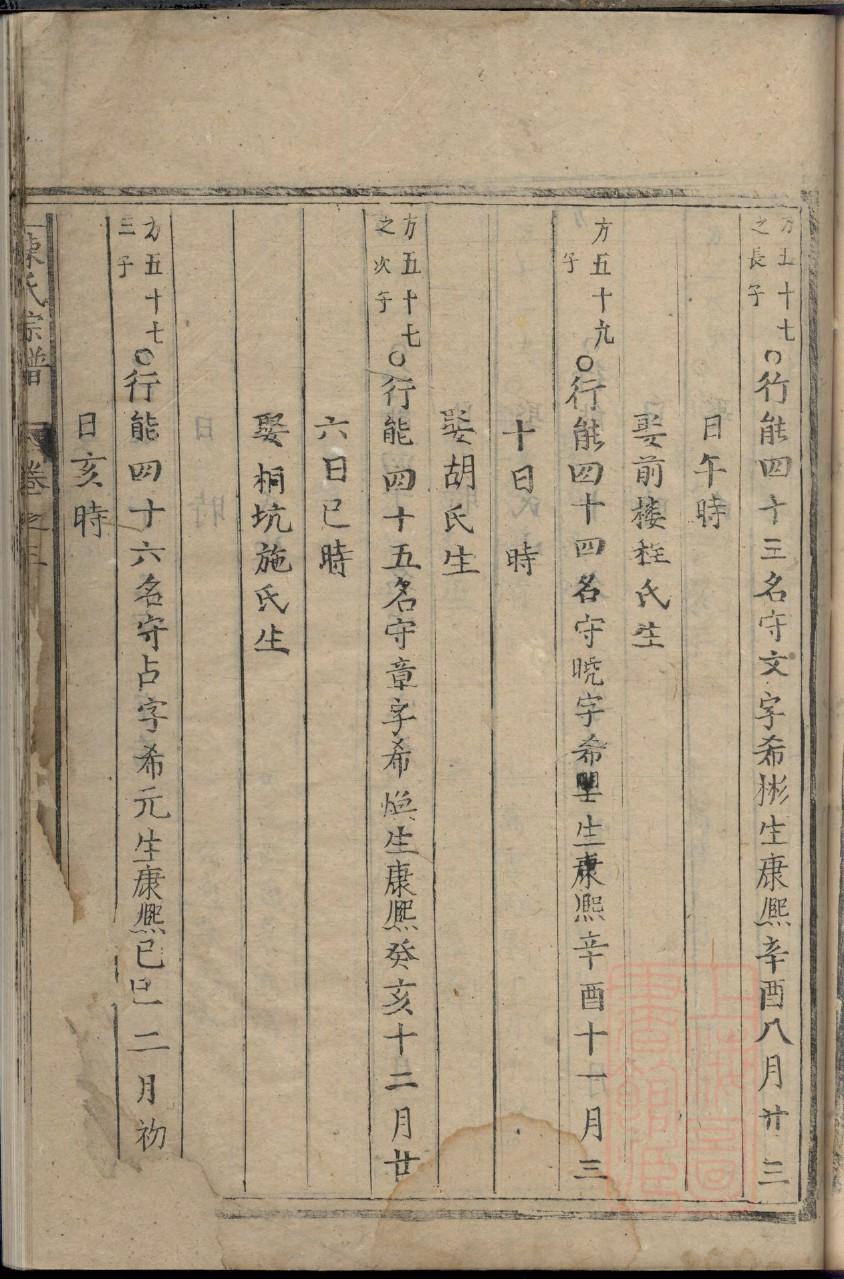 方五十七
之長子
○行能四十三名守文字希彬生康熙辛酉八月廿三
日午時
娶前樓程氏生
方五十九
子
○行能四十四名守曉字希生康熙辛酉十一月三
十日時
娶胡氏生
方五十七
之次子
○行能四十五名守章字希煥生康熙癸亥十二月廿
六日巳時
娶桐坑施氏生
方五十七
三子
○行能四十六名守占字希元生康熙己巳二月初
日亥時
陳氏宗譜 卷之三
上海圖書館藏